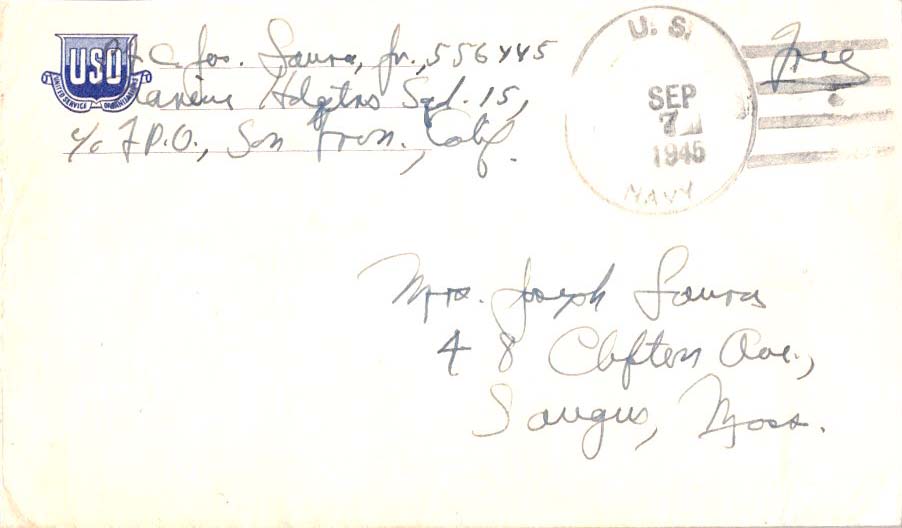 USO
UNITED SERVICE ORGANIZATIONS
Pfc. Jos. Laura, Jr., 556445
Marine Hdqtrs Sqd. 15,
c/o F.P.O., San Fran., Calif.
U. S.
SEP
7
1945
NAVY
Free
Mrs. Joseph Laura
48 Clifton Ave.,
Saugus, Mass.